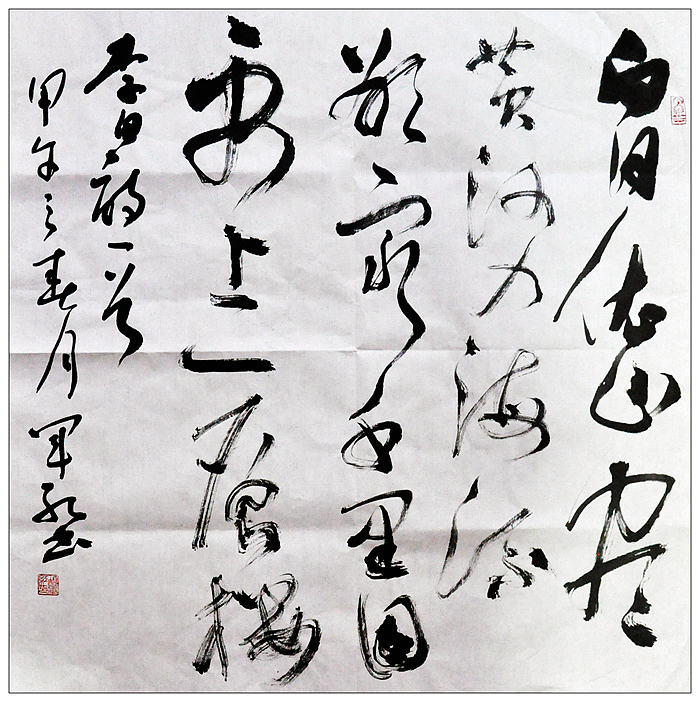 白日依山尽
黄河入海流
欲穷千里目
更上一层楼
李白诗一首
甲午之春月 军书